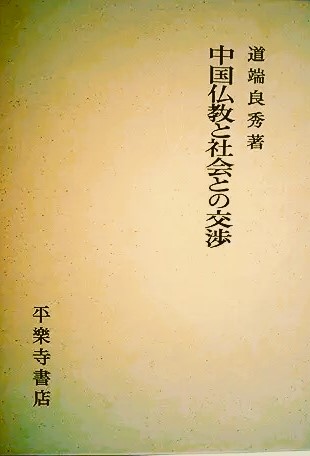 道端良秀著
中国仏教と社会との交渉
平樂寺書店